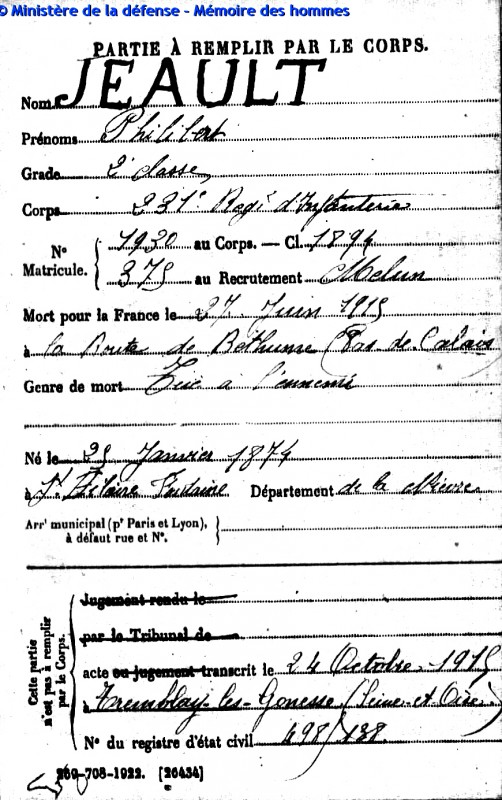 © Ministère de la défense - Mémoire des hommes
PARTIE À REMPLIR PAR LE CORPS.
Nom JEAULT
Prénoms Philibert
Grade 2e classe
Corps 231e Regt d'Infanterie
N° Matricule. { 1930 au Corps. — Cl. 1894
375 au Recrutement Melun
Mort pour la France le 27 Juin 1915
à la Route de Béthune (Pas de Calais)
Genre de mort Tué à l'ennemi
Né le 25 Janvier 1874
à St Hilaire Fontaine Département de la Nièvre
Arrt municipal (pr Paris et Lyon), }
à défaut rue et N°.
Cette partie n'est pas à remplir par le Corps.
Jugement rendu le
par le Tribunal de
acte ou jugement transcrit le 24 Octobre 1915
à Tremblay-les-Gonesse (Seine-et-Oise)
N° du registre d'état civil 498/138
269-708-1922. [26434]